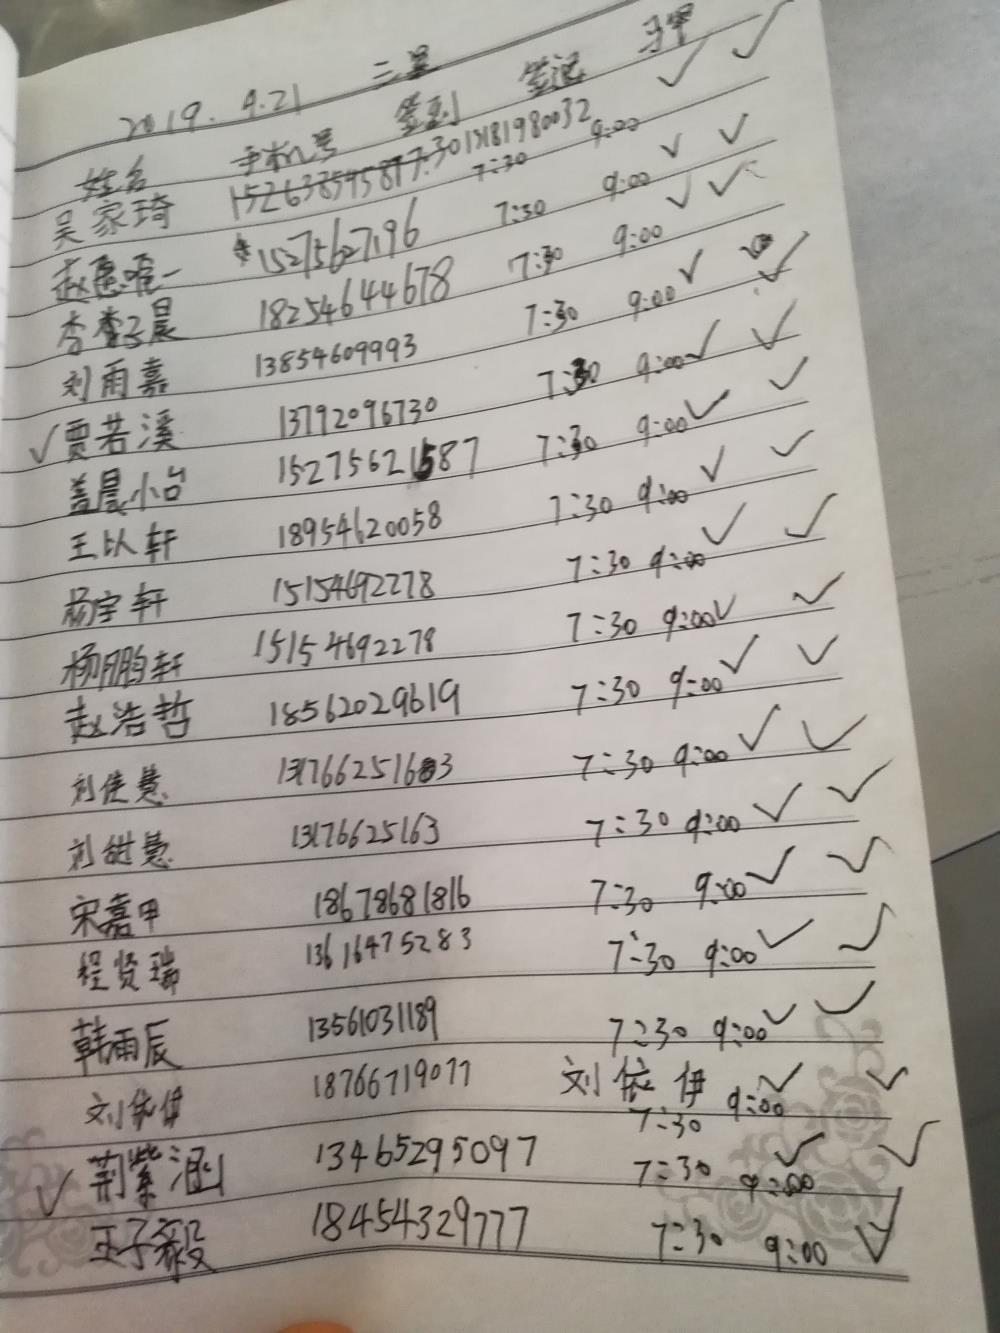 2019.9.21 三星
姓名 手机号 签到 签退 马甲 ✓ ✓
吴家琦 15263854587 7:30 13181980032
赵愚唯一 15275627196 7:30 9:00 ✓ ✓
李李子晨 18254644678 7:30 9:00 ✓ ✓
刘雨嘉 13854609993 7:30 9:00 ✓ ✓
✓ 贾若溪 13792096730 7:30 9:00 ✓ ✓
盖晨小台 15275621587 7:30 9:00 ✓ ✓
王以轩 18954620058 7:30 9:00 ✓ ✓
杨宇轩 15154692278 7:30 9:00 ✓ ✓
杨鹏轩 15154692278 7:30 9:00 ✓ ✓
赵浩哲 18562029619 7:30 9:00 ✓ ✓
刘佳慧 7:30 9:00 ✓ ✓
刘甜慧 13176625163 7:30 9:00 ✓ ✓
宋嘉甲 18678681816 7:30 9:00 ✓ ✓
程贤瑞 13616475283 7:30 9:00 ✓ ✓
韩雨辰 13561031189 7:30 9:00 ✓ ✓
刘依伊 18766719077 刘依伊 7:30 9:00 ✓ ✓
✓ 荆紫涵 13465295097 7:30 9:00 ✓ ✓
王子毅 18454329777 7:30 9:00 ✓